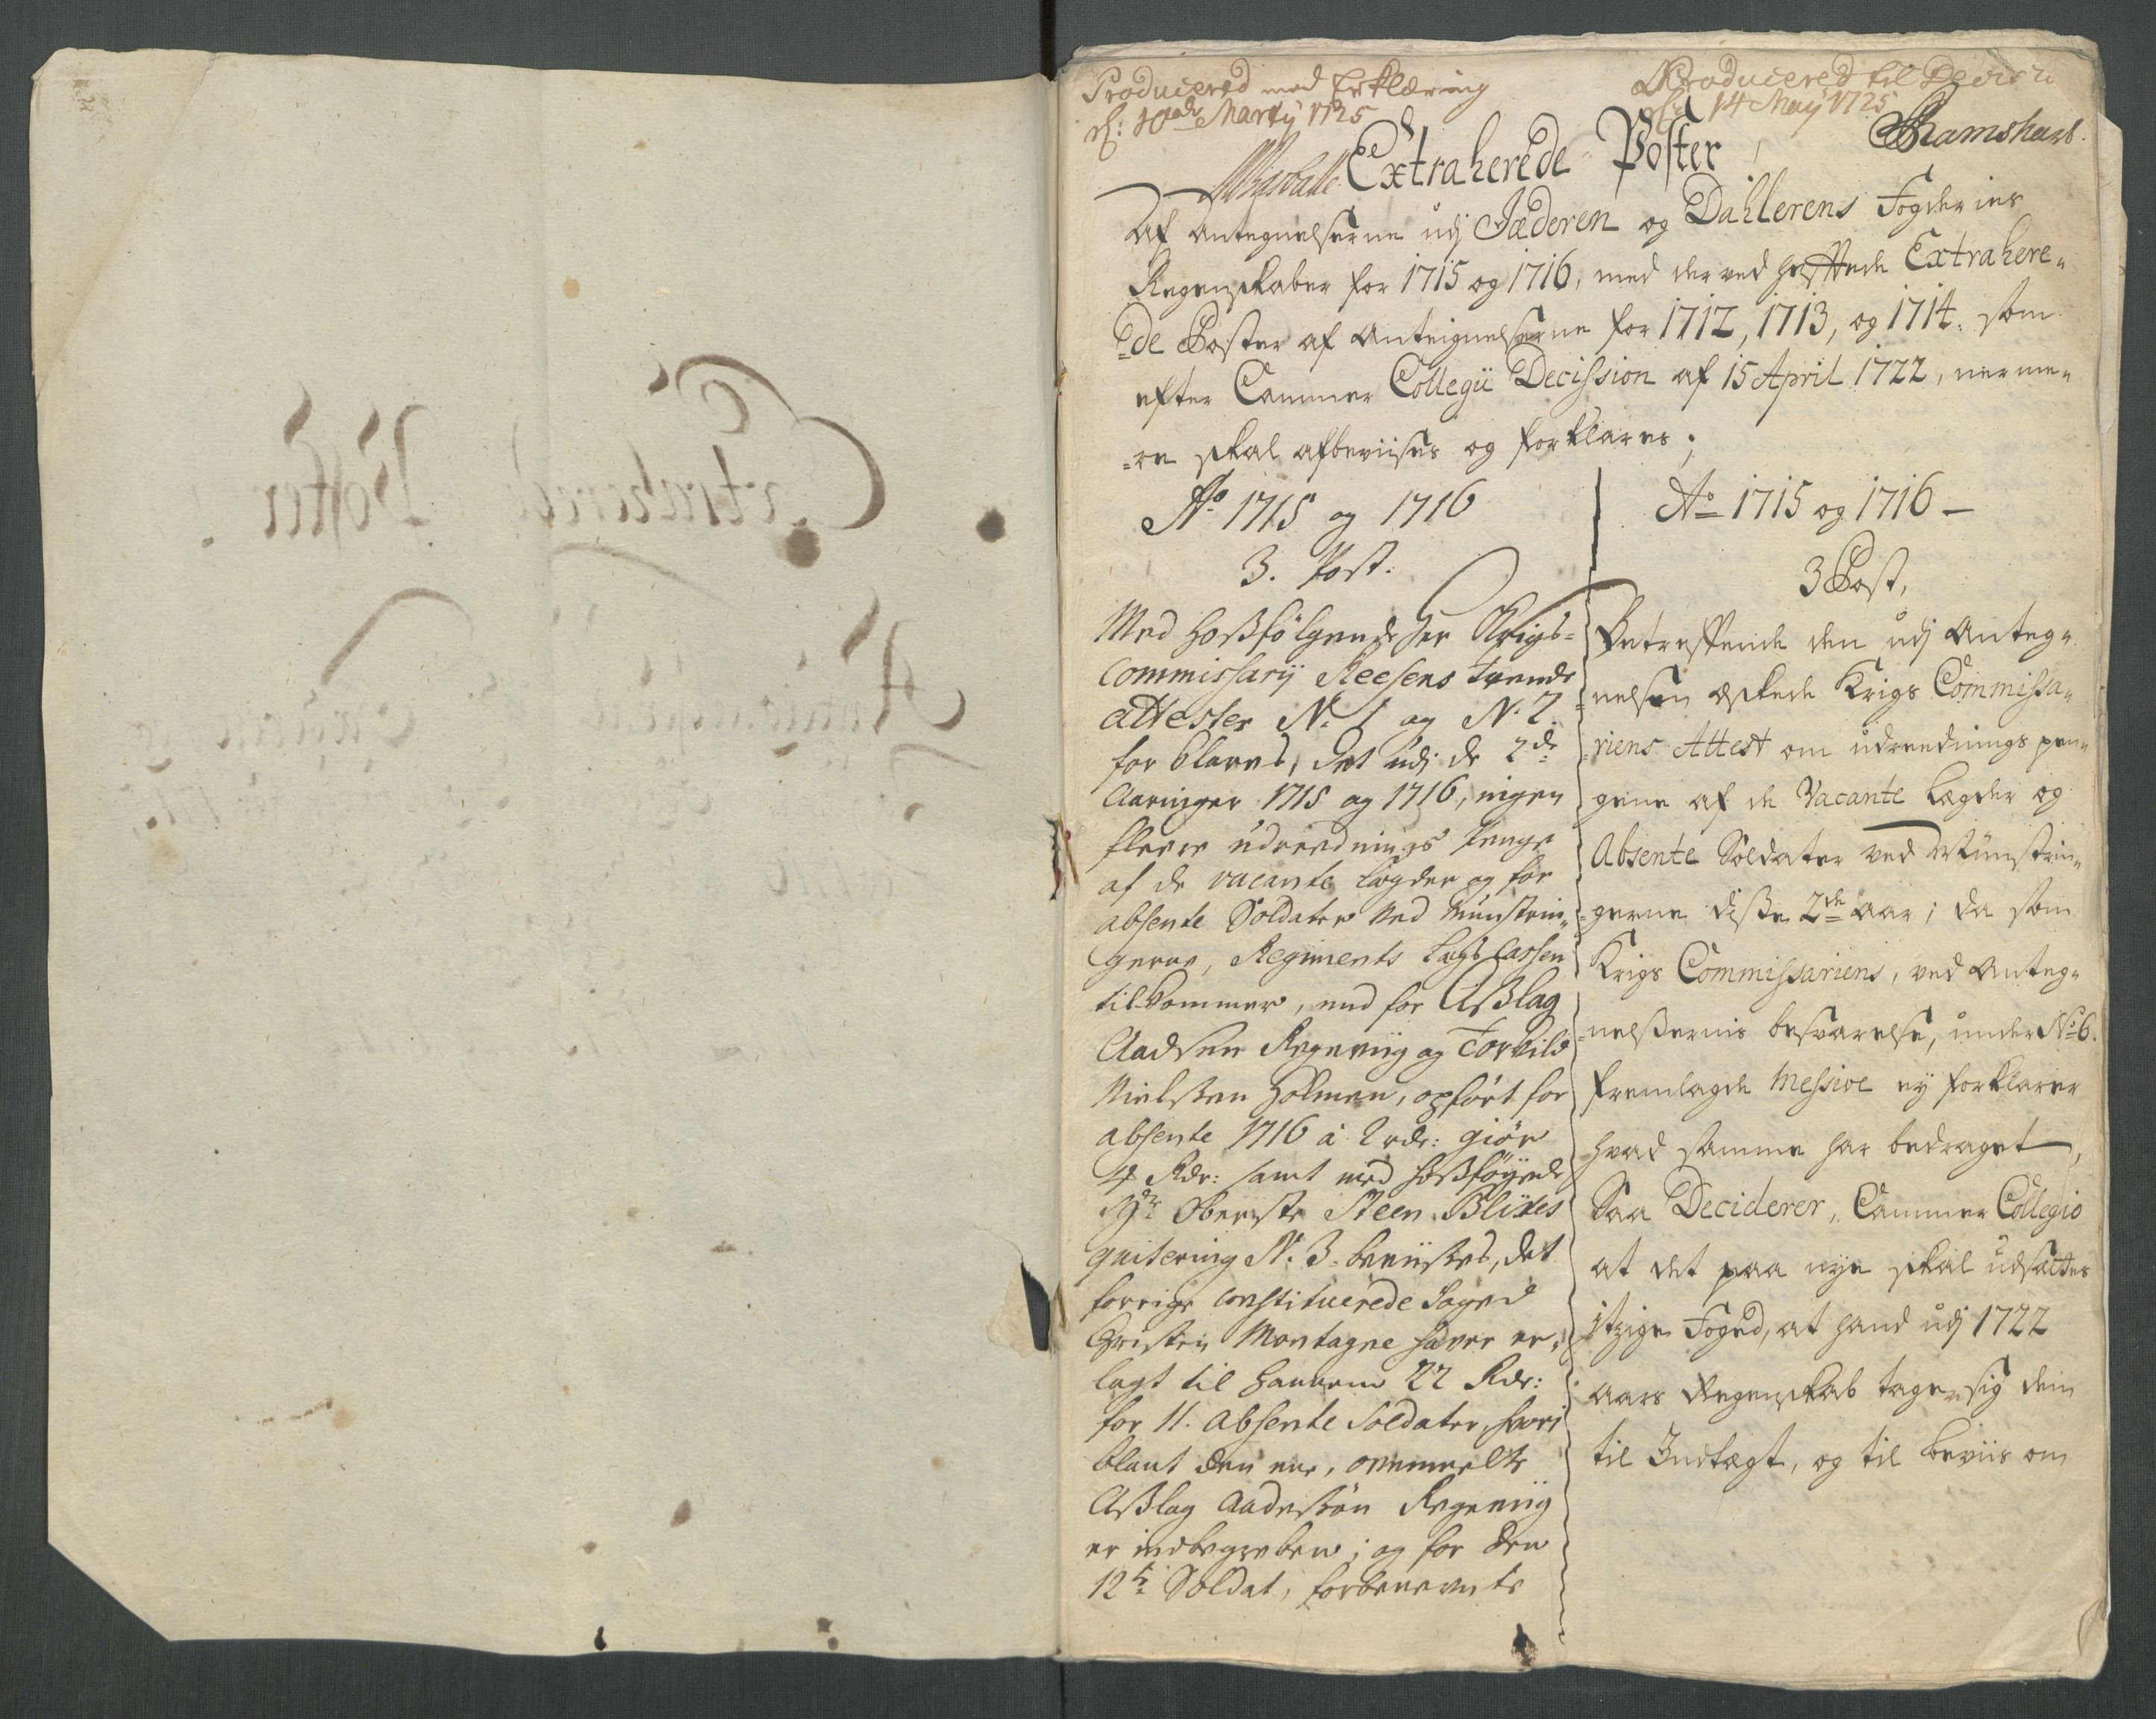 Producered med Erklæring
d: 10de Marty 1725
Producered til Decision
d: 14 Maÿ 1725
Ramshart
Extraherede Poster
Af Antegnelserne udj Jæderen og Dahlerens Fogderies
Regenskaber for 1715 og 1716, med derved hefftede Extrahere„
„de Poster af Anteignelserne for 1712, 1713, og 1714. som
efter Cammer Collegii Decission af 15 April 1722, nerme„
„re skal afbeviises og forklares;
Ao 1715 og 1716
3. Post.
Med Hoßfölgende Her Krigs-
commissarij Reesens tvende
attester No 1 og No 2
forklares, det udj de 2de
Aaringer 1715 og 1716, ingen
fleere udreednings Penge
af de vacante lægder og for
absente Soldater ved Munstrin„
gerne, Regiments Lægs Cassen
tilkommer, end for Aßlag
Aadsen Regeviig og Torkild
Nielssen Holmen, opfört for
absente 1716 à 2 rdr: giör
4 Rdr: samt med hoßföyede
Hr Oberste Steen Blixes
quitering No 3. beviises, det
forrige constituerede Foged
Christen Montagne haver er„
lagt til hannem 22 Rdr:
for 11. absente Soldater, hvori
blant den ene, ovenmelte
Aßlag Aadessön Regeviig
er indbegreben; og for den
12te Soldat, forbenevnte
Ao 1715 og 1716
3 Post,
Betreffende den udj Anteg„
„nelsen æskede Krigs Commissa„
„riens Attest om udreednings pen„
gene af de Vacante Lægder og
Absente Soldater ved Münstrin„
„gerne disse 2de Aar; da som
Krigs Commissariens, ved Anteg„
„nelßernis besvarelse, under No 6.
fremlagde Messive ey forklarer
hvad samme har bedraget,
Saa Deciderer, Cammer Collegio
at det paa nye skal udsættes
itzige Foged, at hand udj 1722
aars Regenskab tager sig dem
til Indtægt, og til beviis om